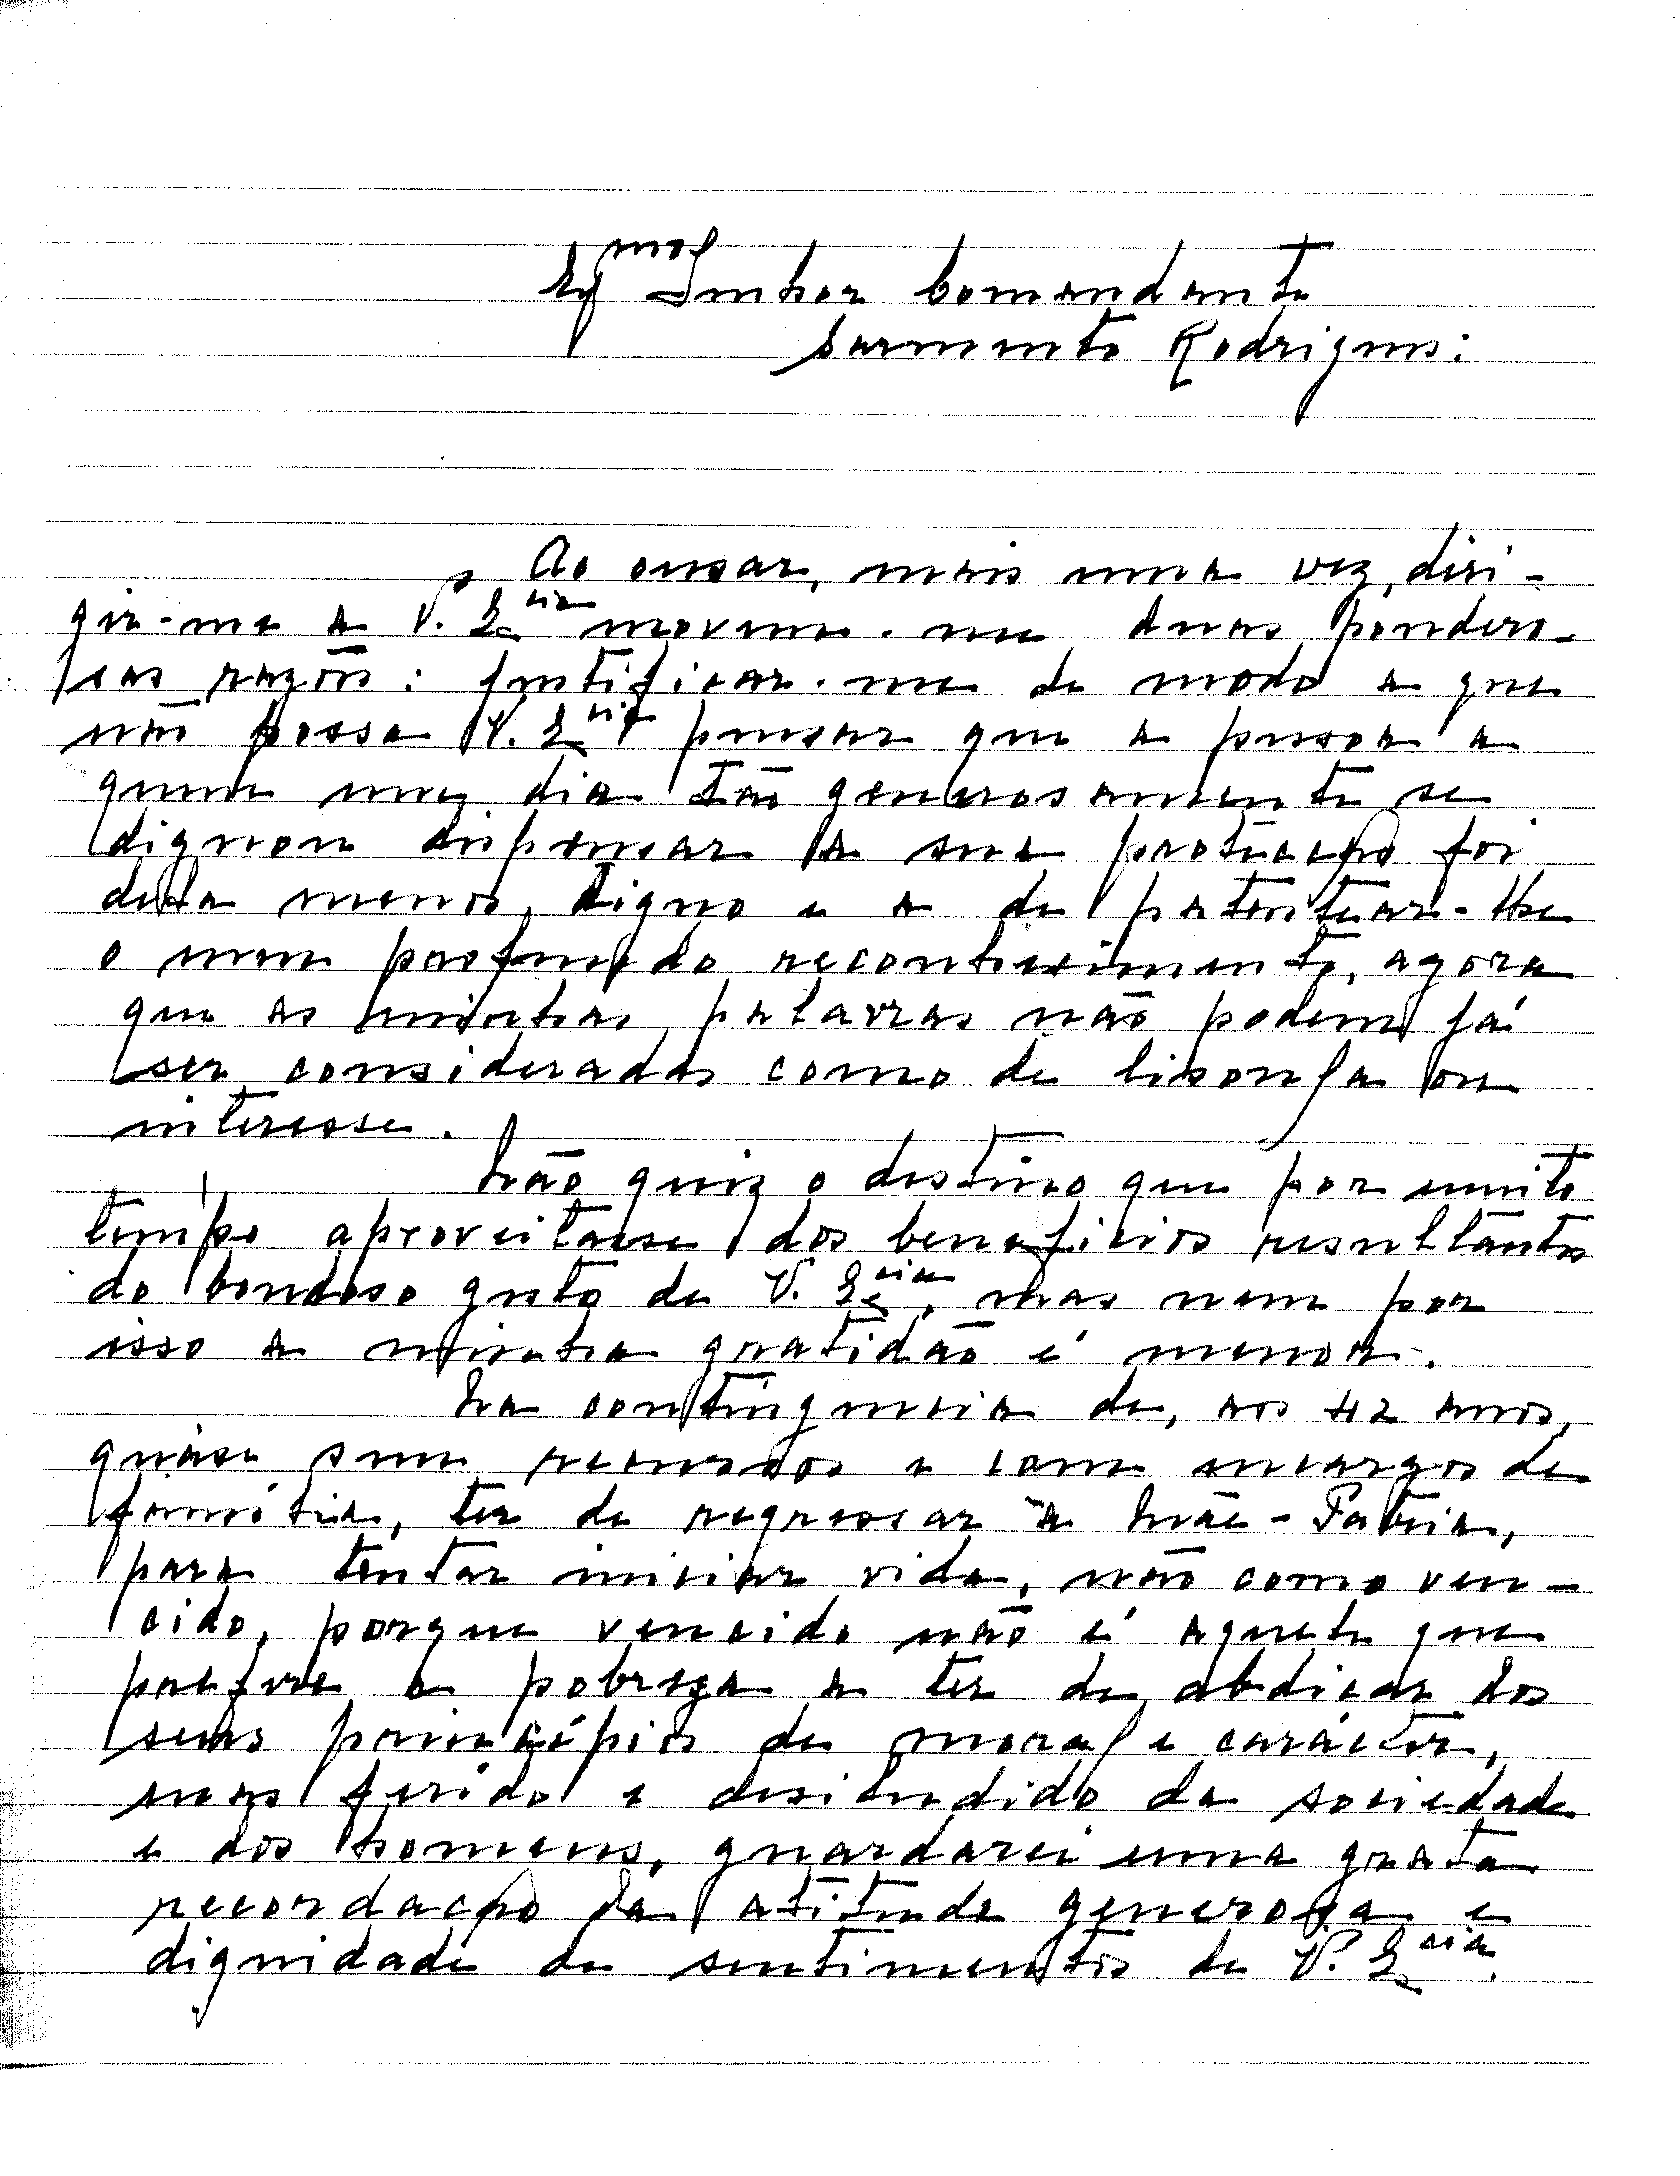 Exmo Senhor Comandante
Sarmento Rodrigues:
Ao ousar, mais uma vez, diri-
gir-me a V. Excia movem-me duas pondero-
sas razões: justificar-me de modo a que
não possa V. Excia pensar que a pessoa a
quem um dia tão generosamente se
dignou dispensar a sua protecção foi
dela menos digno e a de patentear-lhe
o meu profundo reconhecimento, agora
que as minhas palavras não podem já
ser consideradas como de lisonja ou
interesse.
Não quiz o destino que por muito
tempo aproveitasse dos benefícios resultantes
do bondoso gesto de V. Excia, mas nem por
isso a minha gratidão é menor.
Na contingencia de, aos 42 anos,
quase sem recursos e com encargos de
família, ter de regressar à Mãe-Patria,
para tentar iniciar vida, não como ven-
cido, porque vencido não é aquele que
prefere a pobreza a ter de abdicar dos
seus princípios de moral e carácter,
mas ferido e desiludido da sociedade
e dos homens, guardarei uma grata
recordação da atitude generosa e
dignidade de sentimentos de V. Excia.